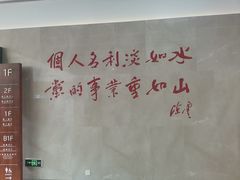 個人名利淡如水
黨的事業重如山
1F
2F
1F
B1